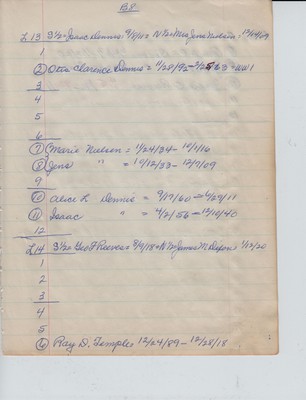 BP
L 13 S½ = Isaac Dennis = 9/8/10 = N½ = Mrs Jens Nielson = 12/14/09
1
② Otto Clarence Dennis = 11/28/92 - 3/25/63 = WW1
3
4
5
6
⑦ Marie Nielson = 11/24/34 - 10/1/16
⑧ Jens " = 10/12/33 - 12/7/09
9
⑩ Alice L Dennis = 9/17/60 - 6/29/11
⑪ Isaac " = 4/2/56 - 12/10/40
12
L 14 S½ = Geo F Reeves = 8/9/18 = N½ James M 1/13/20
1
2
3
4
5
⑥ Ray D. Temple 12/24/89 - 12/28/18